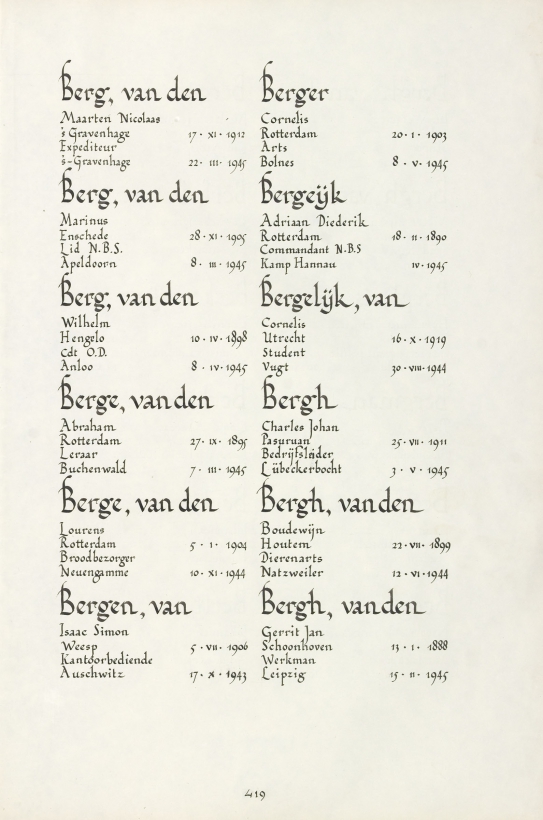 Berg, van den
Maarten Nicolaas
's Gravenhage 17 · XI · 1912
Expediteur
's-Gravenhage 22 · III · 1945
Berg, van den
Marinus
Enschede 28 · XI · 1905
Lid N.B.S.
Apeldoorn 8 · III · 1945
Berg, van den
Wilhelm
Hengelo 10 · IV · 1898
Cdt O.D.
Anloo 8 · IV · 1945
Berge, van den
Abraham
Rotterdam 27 · IX · 1895
Leraar
Buchenwald 7 · III · 1945
Berge, van den
Lourens
Rotterdam 5 · I · 1904
Broodbezorger
Neuengamme 10 · XI · 1944
Bergen, van
Isaac Simon
Weesp 5 · VII · 1906
Kantoorbediende
Auschwitz 17 · X · 1943
Berger
Cornelis
Rotterdam 20 · I · 1903
Arts
Bolnes 8 · V · 1945
Bergeijk
Adriaan Diederik
Rotterdam 18 · II · 1890
Commandant N.B.S
Kamp Hannau IV · 1945
Bergelijk, van
Cornelis
Utrecht 16 · X · 1919
Student
Vugt 30 · VIII · 1944
Bergh
Charles Johan
Pasuruan 25 · VII · 1911
Bedrijfsleider
Lübeckerbocht 3 · V · 1945
Bergh, van den
Boudewijn
Houtem 22 · VII · 1899
Dierenarts
Natzweiler 12 · VI · 1944
Bergh, van den
Gerrit Jan
Schoonhoven 13 · I · 1888
Werkman
Leipzig 15 · II · 1945
419